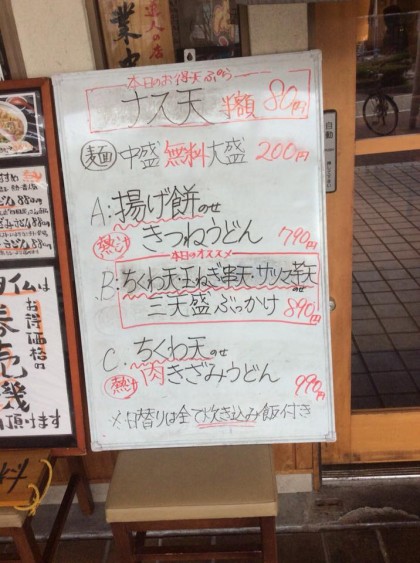 本日のお得天ぷら
ナス天 半額 80円
麺 中盛 無料 大盛 200円
A:揚げ餅のせ
熱汁 きつねうどん 790円
本日のオススメ
B:ちくわ天・玉ねぎ串天・サツマ芋天
のせ
三天盛ぶっかけ 890円
C:ちくわ天のせ
熱汁 肉きざみうどん 990円
※日替りは全て炊き込み飯付き
達人の店
イムは
お得価格の
券売機
頂けます
料
自動